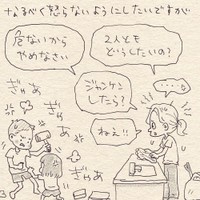 なるべく怒らないようにしたいですが
2人とも
どうしたいの?
危ないから
やめなさい
ジャンケン
したら?
・・・・
ねぇ!!
ぎゃあ
ぎゃあ
ぎゃあ
ぎゃあ